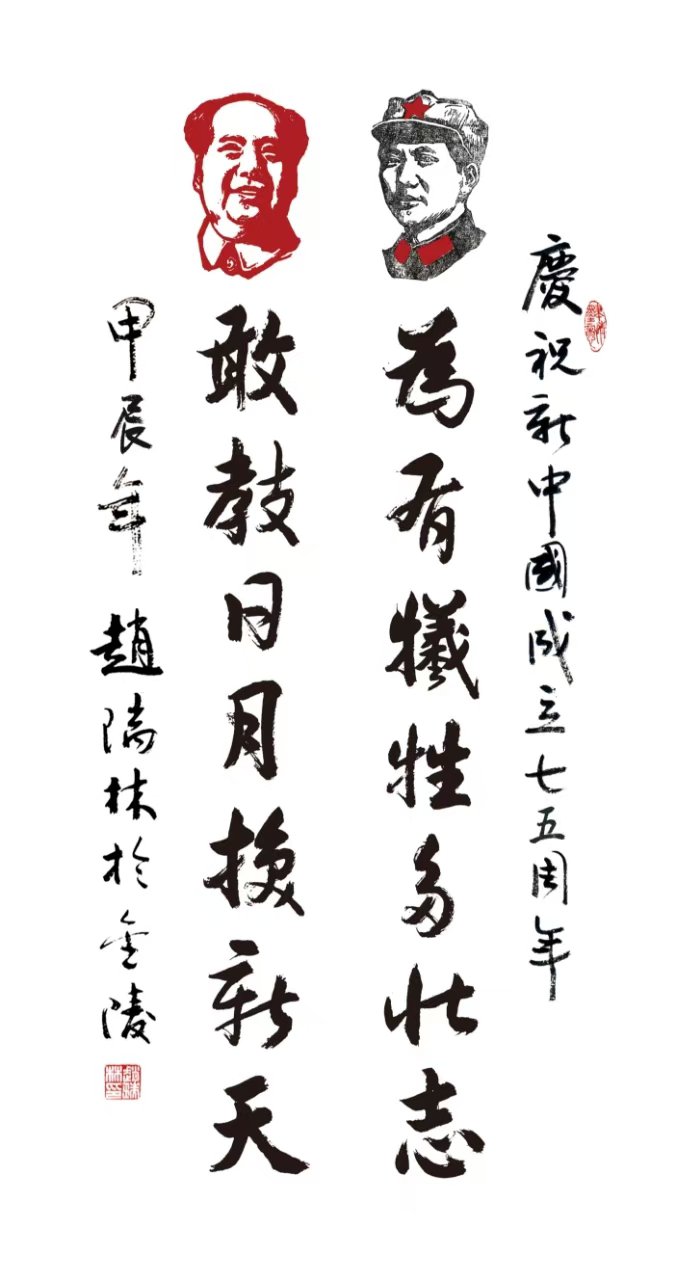 慶祝新中國成立七五周年
為有犧牲多壯志
敢教日月換新天
甲辰年 趙隔林於金陵